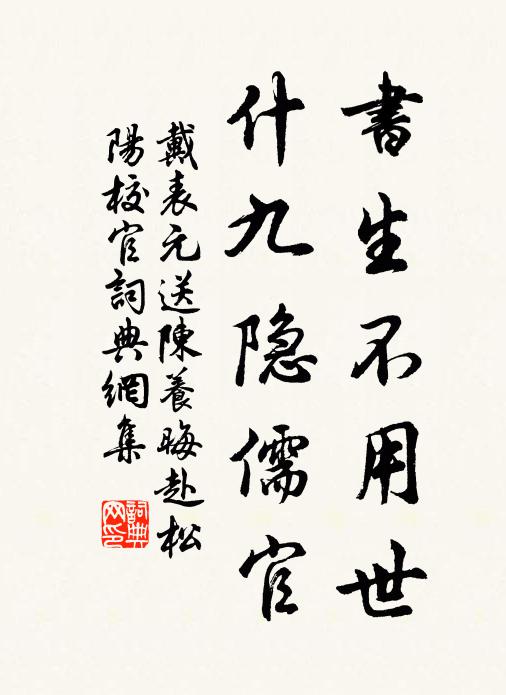 書生不用世
什九隐儒官
戴表元送陳養晦赴松
陽校官詞典網集
詞典
网印